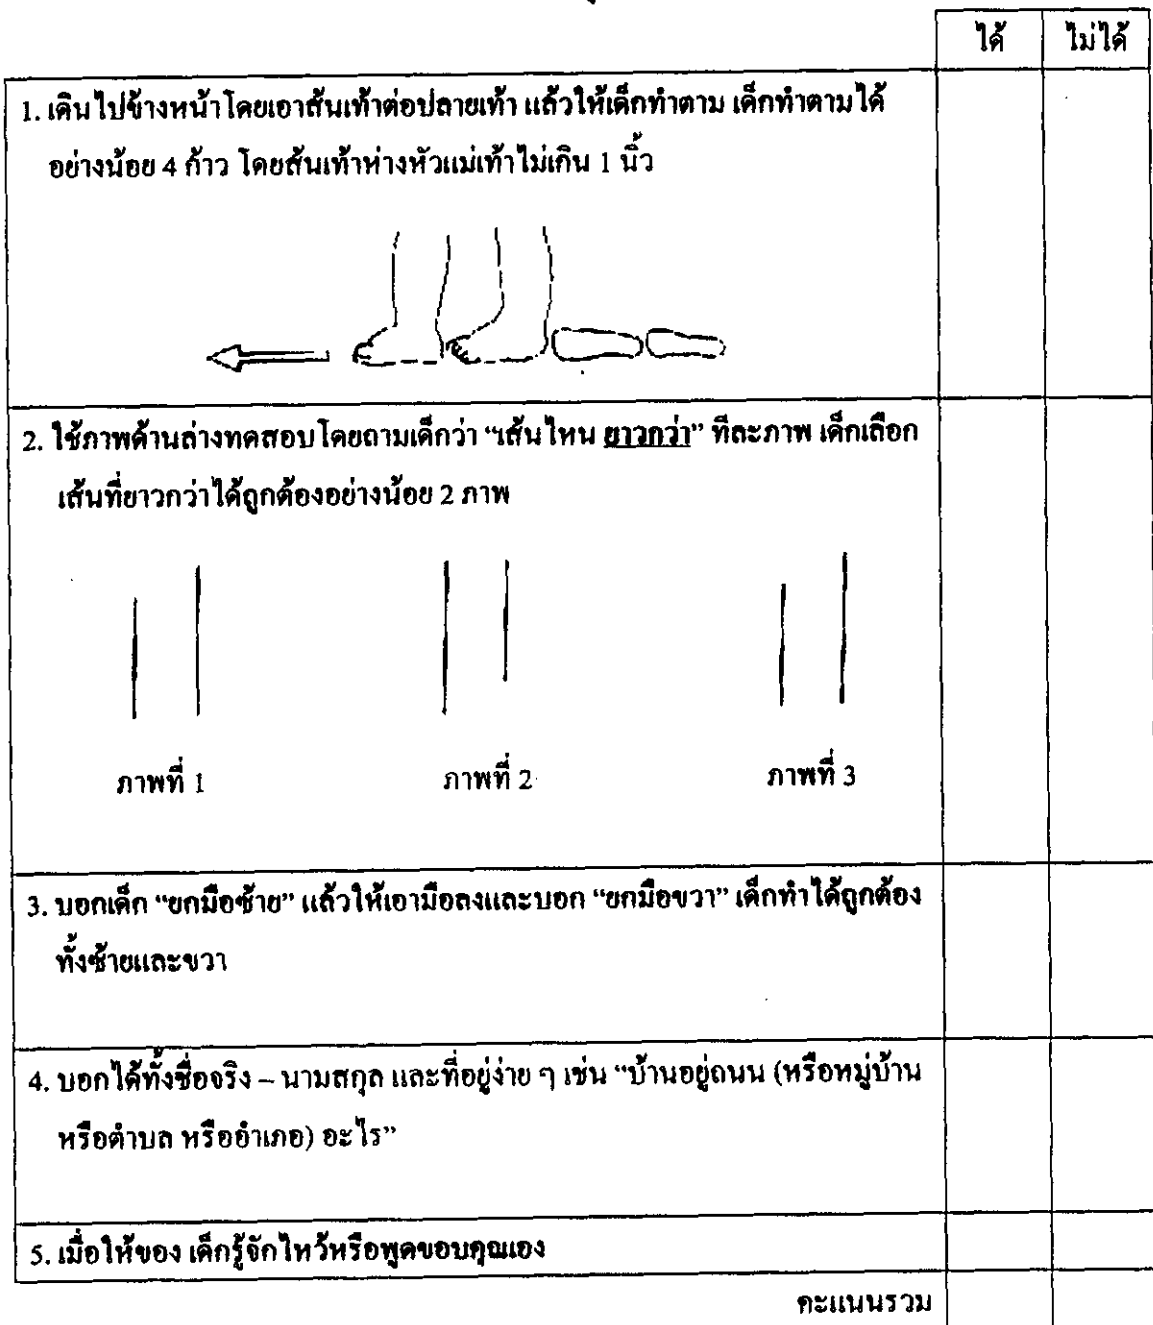 ได้ ไม่ได้
1. เดินไปข้างหน้าโดยเอาส้นเท้าต่อปลายเท้า แล้วให้เด็กทำตาม เด็กทำตามได้
อย่างน้อย 4 ก้าว โดยส้นเท้าห่างหัวแม่เท้าไม่เกิน 1 นิ้ว
2. ใช้ภาพด้านล่างทดสอบโดยถามเด็กว่า “เส้นไหน ยาวกว่า” ทีละภาพ เด็กเลือก
เส้นที่ยาวกว่าได้ถูกต้องอย่างน้อย 2 ภาพ
ภาพที่ 1 ภาพที่ 2 ภาพที่ 3
3. บอกเด็ก “ยกมือซ้าย” แล้วให้เอามือลงและบอก “ยกมือขวา” เด็กทำได้ถูกต้อง
ทั้งซ้ายและขวา
4. บอกได้ทั้งชื่อจริง – นามสกุล และที่อยู่ง่าย ๆ เช่น “บ้านอยู่ถนน (หรือหมู่บ้าน
หรือตำบล หรืออำเภอ) อะไร”
5. เมื่อให้ของ เด็กรู้จักไหว้หรือพูดขอบคุณเอง
คะแนนรวม